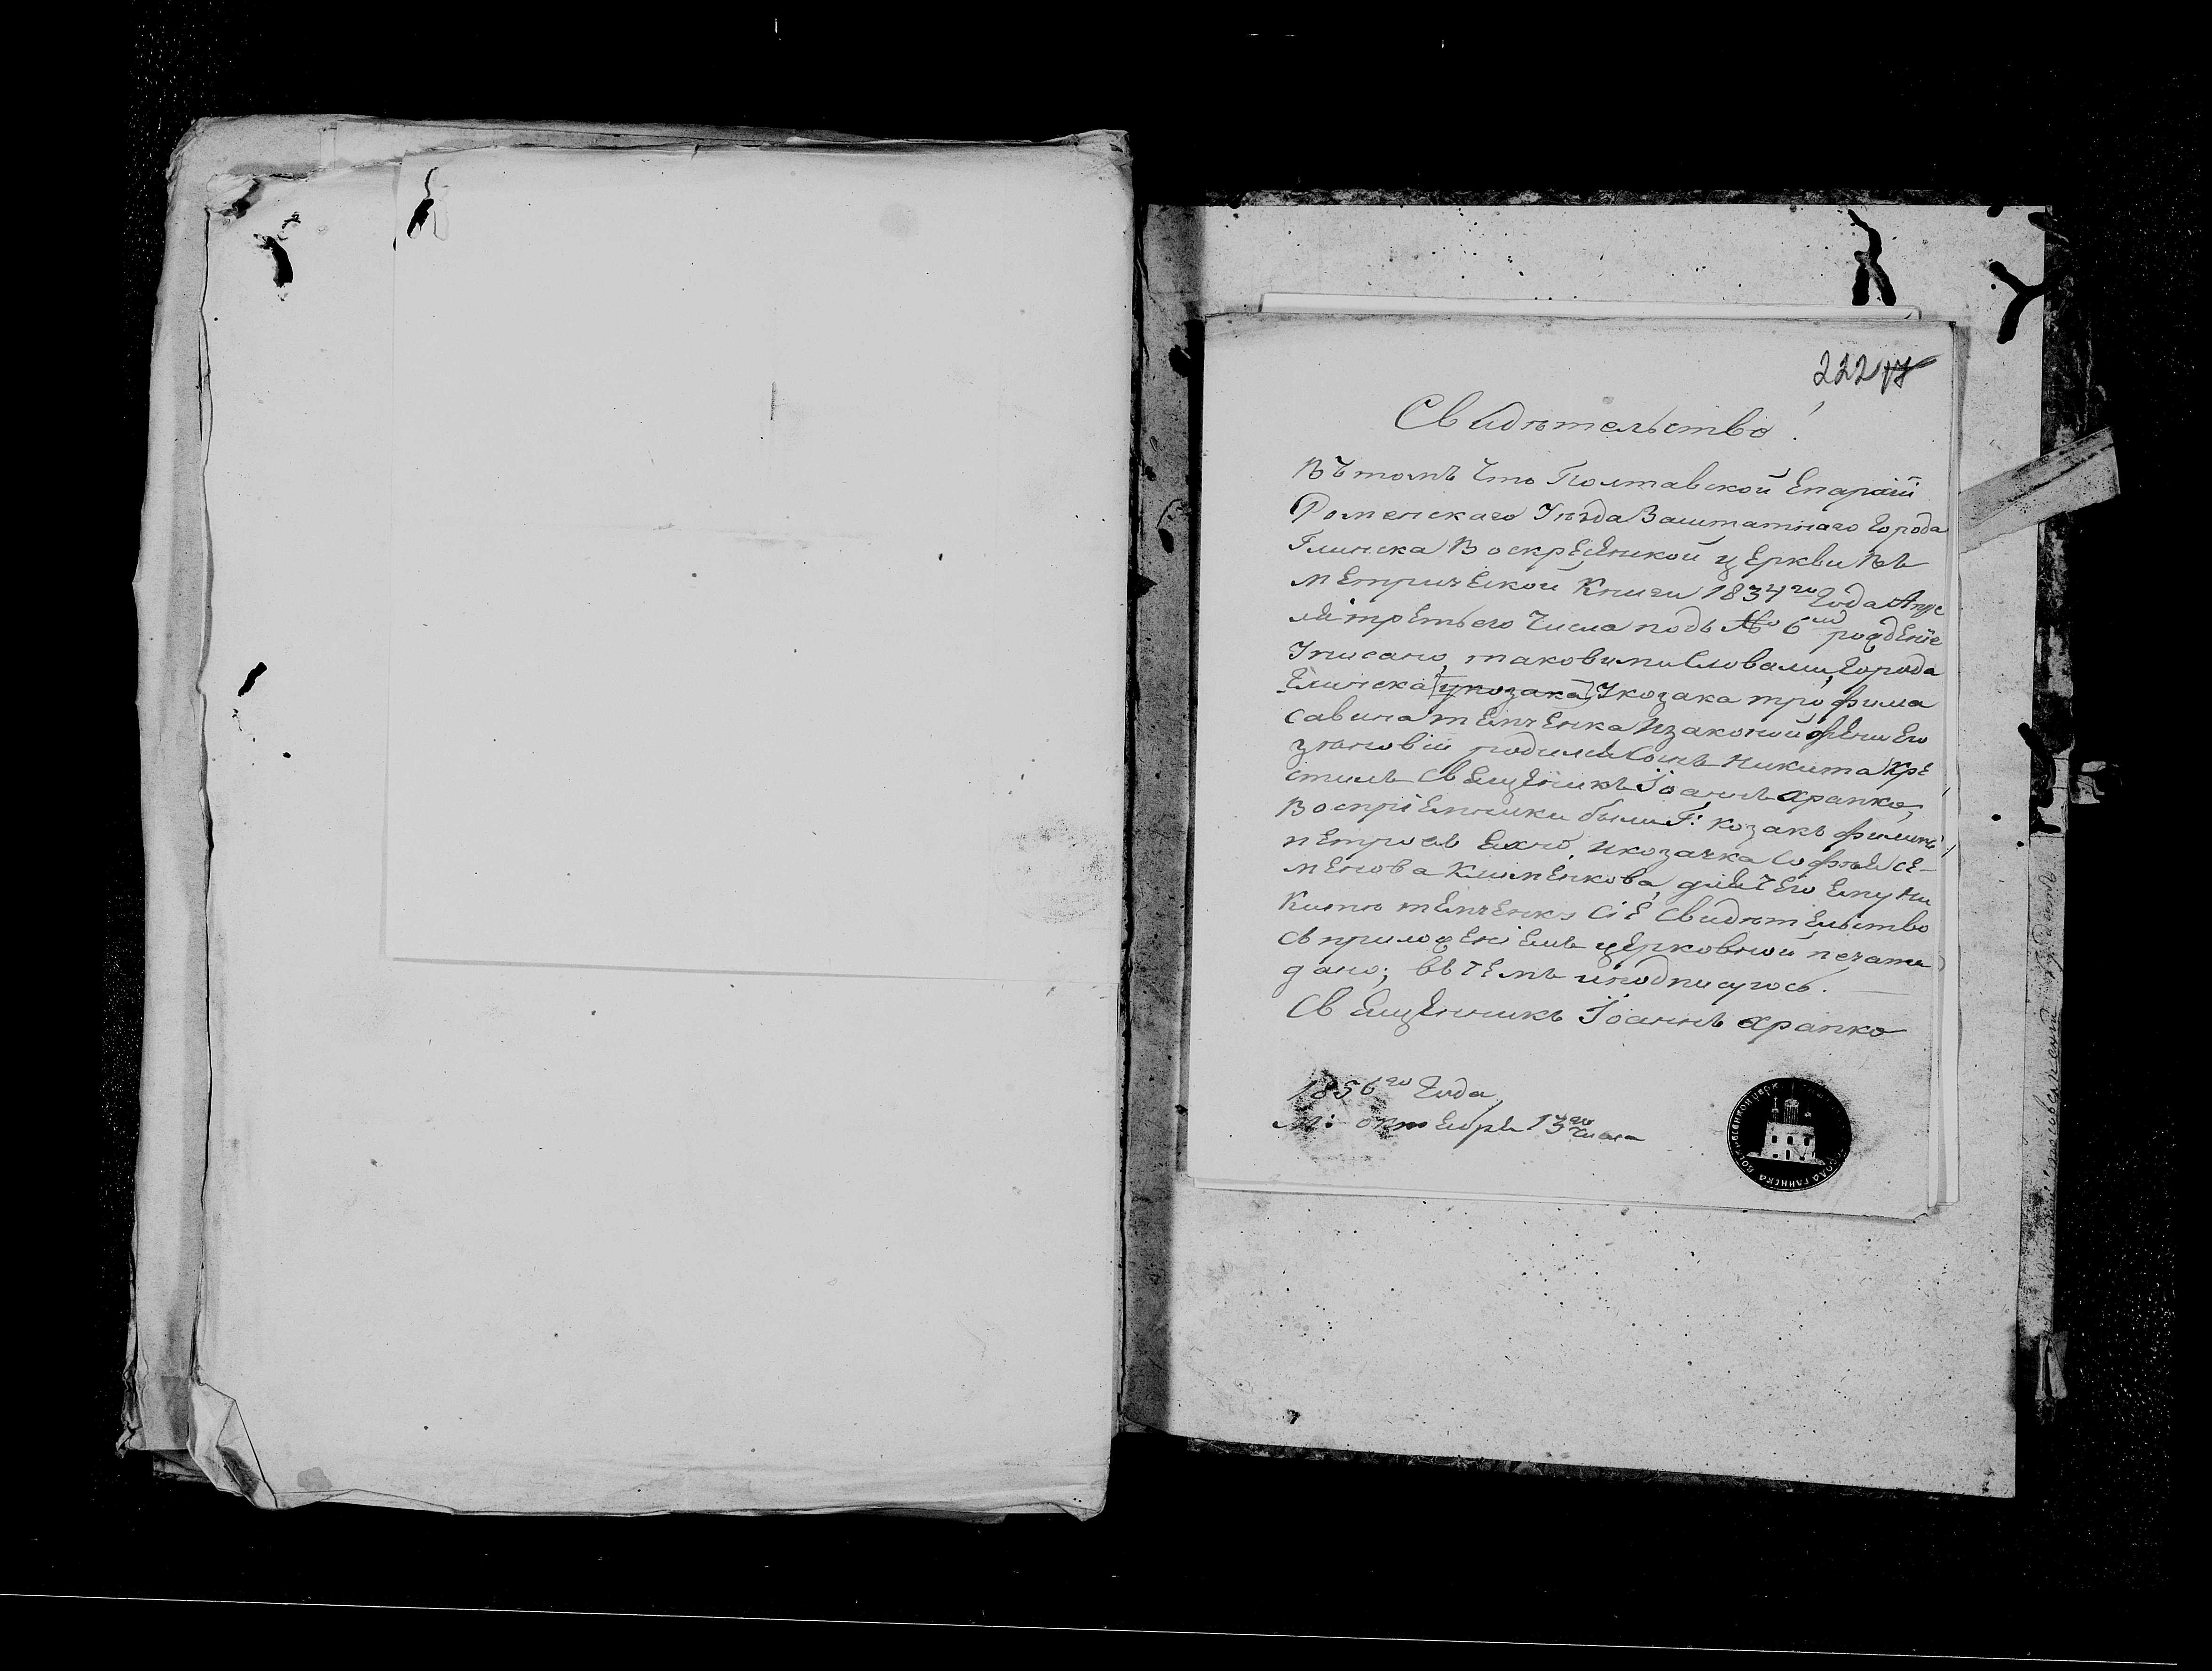 222 17
Свидѣтельство!
Въ томъ что Полтавской Епархіи
Роменскаго Уѣзда Заштатнаго Города
Глинска Воскресенской церкви въ
метрической Книги 1834го Года Апре
ля третьего Числа подъ № 6мъ рожденіе
Уписано, таковими Словами, Города
Глинска [у козака] У козака трофима
савина темченка и законой жени Его
зѣновіи родился Сынъ Никита Кре
стилъ Священикъ Іоаннъ Храпко,
Воспріемники были Г: козакъ филипъ
петровъ и козачка Софія Се-
менова Клименкова, для Чего Ему Ни
Китѣ темченку Сіе Свидѣтельство
съ приложеніемъ церковной печати
дано; въ Чемъ и подписуюсь.
Священникъ Іоаннъ Храпко
1856го Года,
М: октября 13го Числа
города глинска